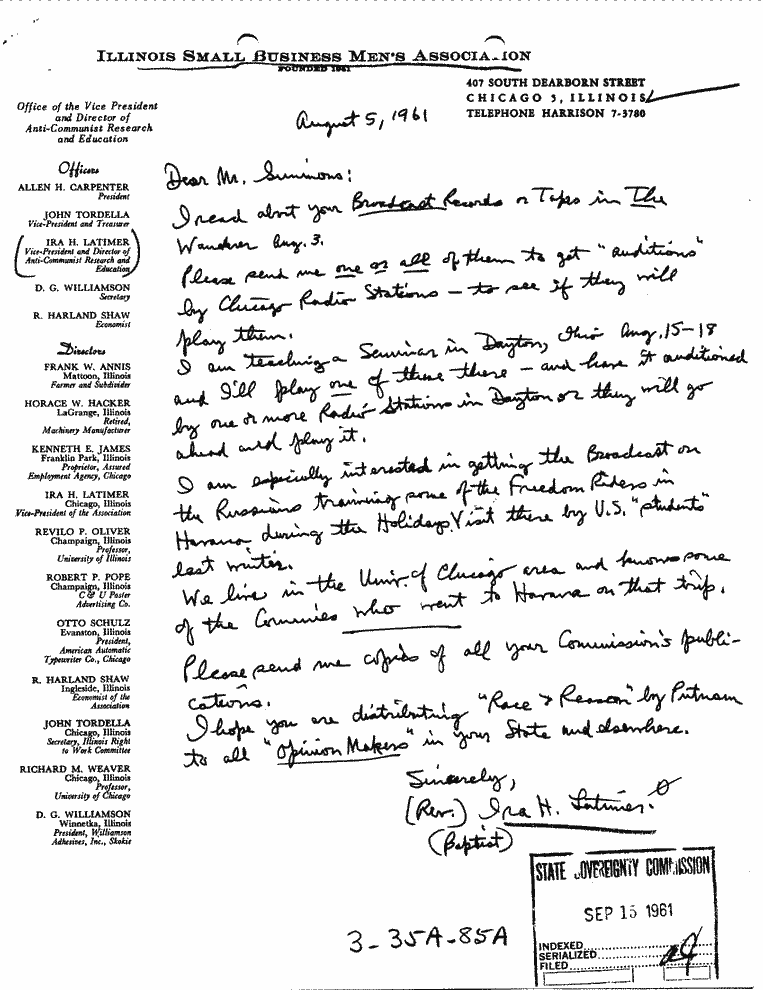 ILLINOIS SMALL BUSINESS MEN'S ASSOCIATION
FOUNDED 1941
407 SOUTH DEARBORN STREET
CHICAGO 5, ILLINOIS
TELEPHONE HARRISON 7-3780
Office of the Vice President
and Director of
Anti-Communist Research
and Education
Officers
ALLEN H. CARPENTER
President
JOHN TORDELLA
Vice-President and Treasurer
IRA H. LATIMER
Vice-President and Director of
Anti-Communist Research and
Education
D. G. WILLIAMSON
Secretary
R. HARLAND SHAW
Economist
Directors
FRANK W. ANNIS
Mattoon, Illinois
Farmer and Subdivider
HORACE W. HACKER
LaGrange, Illinois
Retired,
Machinery Manufacturer
KENNETH E. JAMES
Franklin Park, Illinois
Proprietor, Assured
Employment Agency, Chicago
IRA H. LATIMER
Chicago, Illinois
Vice-President of the Association
REVILO P. OLIVER
Champaign, Illinois
Professor,
University of Illinois
ROBERT P. POPE
Champaign, Illinois
C & U Poster
Advertising Co.
OTTO SCHULZ
Evanston, Illinois
President,
American Automatic
Typewriter Co., Chicago
R. HARLAND SHAW
Ingleside, Illinois
Economist of the
Association
JOHN TORDELLA
Chicago, Illinois
Secretary, Illinois Right
to Work Committee
RICHARD M. WEAVER
Chicago, Illinois
Professor,
University of Chicago
D. G. WILLIAMSON
Winnetka, Illinois
President, Williamson
Adhesives, Inc., Skokie
August 5, 1961
Dear Mr. Simmons:
I read about your Broadcast Records or Tapes in The
Wanderer Aug. 3.
Please send me one or all of them to get "auditions"
by Chicago Radio Stations – to see if they will
play them.
I am teaching a Seminar in Dayton, Ohio Aug. 15-18
and I'll play one of these there – and have it auditioned
by one or more Radio Stations in Dayton or they will go
ahead and play it.
I am especially interested in getting the Broadcast on
the Russians training some of the Freedom Riders in
Havana during the Holidays Visit there by U.S. "students"
last winter.
We live in the Univ. of Chicago area and know some
of the Commies who went to Havana on that trip.
Please send me copies of all your Commission's publi-
cations.
I hope you are distributing "Race & Reason" by Putnam
to all "Opinion Makers" in your State and elsewhere.
Sincerely,
(Rev.) Ira H. Latimer.
(Baptist)
STATE SOVEREIGNTY COMMISSION
SEP 15 1961
INDEXED
SERIALIZED
FILED
3-35A-85A